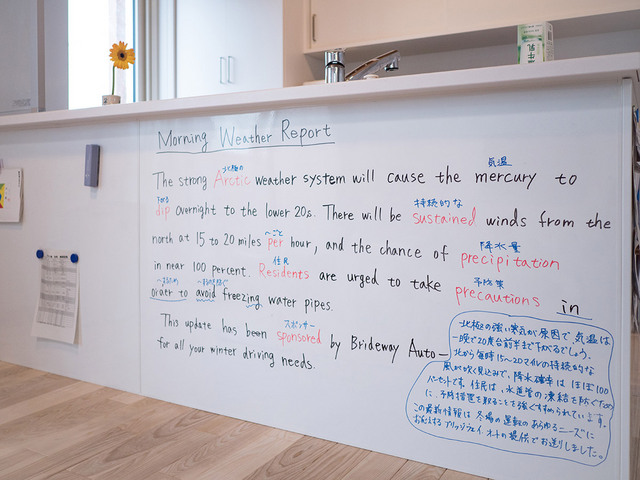 Morning Weather Report
北極の 気温
The strong Arctic weather system will cause the mercury to
下がる 持続的な
dip overnight to the lower 20s. There will be sustained winds from the
〜ごと 降水量
north at 15 to 20 miles per hour, and the chance of precipitation
住民 予防策
in near 100 percent. Residents are urged to take precautions in
order to avoid freezing water pipes.
スポンサー
This update has been sponsored by Brideway Auto-
for all your winter driving needs.
北極の強い寒気が原因で、気温は
一晩で20度台前半まで下がるでしょう。
北から毎時15〜20マイルの持続的な
風が吹く見込みで、降水確率はほぼ100
パーセントです。住民は、水道管の凍結を防ぐため
に、予防措置を取ることを強くすすめられています。
この最新情報は冬場の運転のあらゆるニーズに
お応えするブリッジウェイ・オートの提供でお送りしました。
牛乳